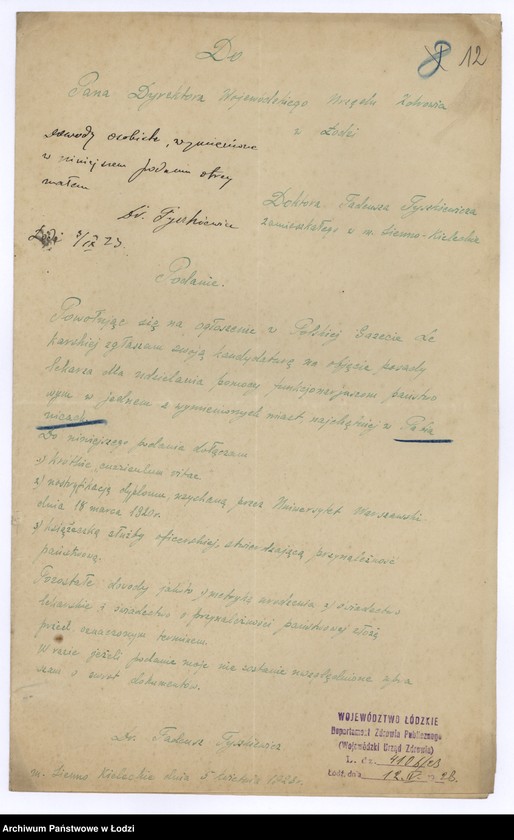 8 12
Do
Pana Dyrektora Wojewódzkiego Urzędu Zdrowia
w Łodzi
Dowody osobiste, wymienione
w niniejszem podaniu otrzy
małem
Dr. Tyszkiewicz
Łódź 3/IX 23.
Doktora Tadeusza Tyszkiewicza
zamieszkałego w m. Sienno-Kieleckie
Podanie.
Powołując się na ogłoszenie w Polskiej Gazecie Le
karskiej zgłaszam swoją kandydaturę na objęcie posady
lekarza dla udzielania pomocy funkcjonarjuszom państwo
wym w jednem z wymienionych miast, najchętniej w Pabia
nicach.
Do niniejszego podania dołączam
1) krótkie curriculum vitae
2) nostryfikację dyplomu, uzyskaną przez Uniwersytet Warszawski
dnia 18 marca 1920 r.
3) książeczkę służby oficerskiej, stwierdzającą przynależność
państwową.
Pozostałe dowody jak to 1) metrykę urodzenia 2) świadectwo
lekarskie i świadectwo o przynależności państwowej złożę
przed oznaczonym terminem.
W razie jeżeli podanie moje nie zostanie uwzględnione upra
szam o zwrot dokumentów.
Dr. Tadeusz Tyszkiewicz
m. Sienno Kieleckie dnia 5 kwietnia 1923 r.
WOJEWÓDZTWO ŁÓDZKIE
Departament Zdrowia Publicznego
(Wojewódzki Urząd Zdrowia)
L. dz.
Łódź, dnia 12. IV
Archiwum Państwowe w Łodzi